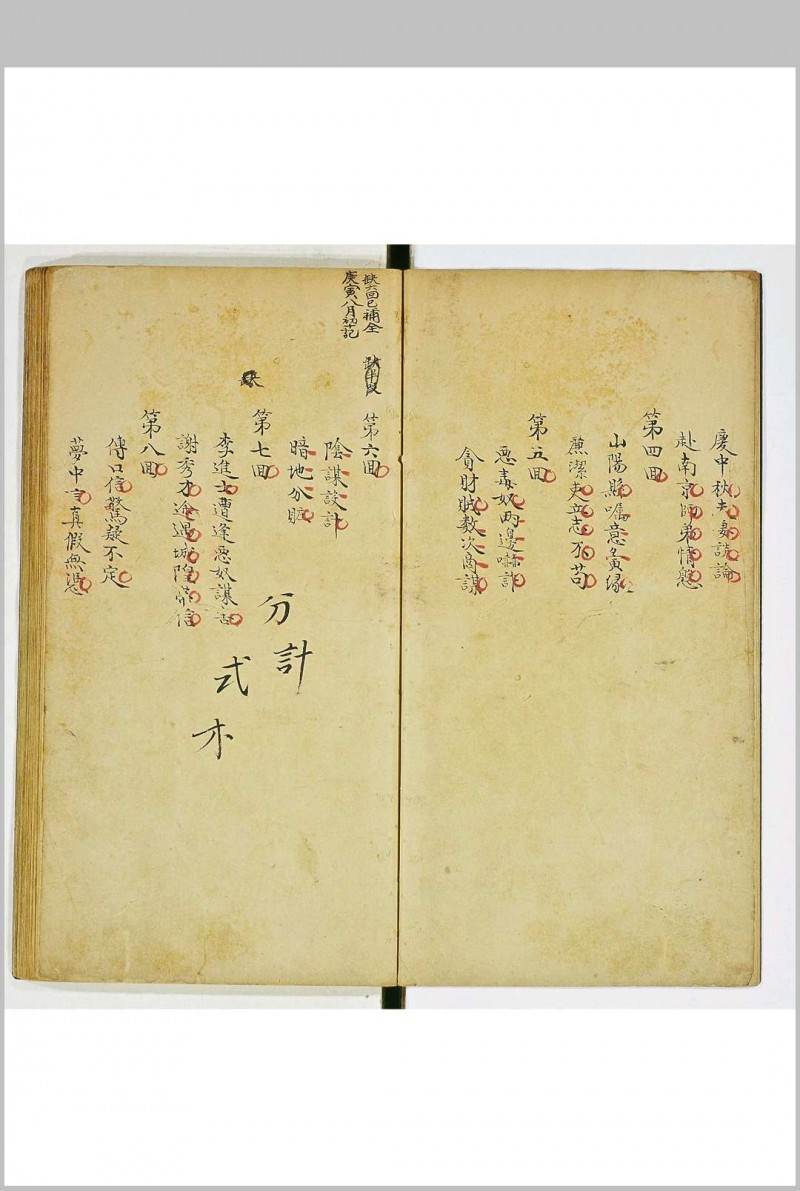 慶中秋夫妻談論
赴南京師弟情慇
第四回
山陽縣囑意夤緣
蔗潔吏立志不苟
第五回
惡毒奴兩邊嚇詐
貪財賊數次商謀
缺六回已補全
庚寅八月初記
第六回
陰謀設計
暗地分賍
第七回
李進士遭逢惡奴謀害
謝秀才途遇城隍寄信
第八回
傳口信驚疑不定
夢中言真假無憑
分
計
式